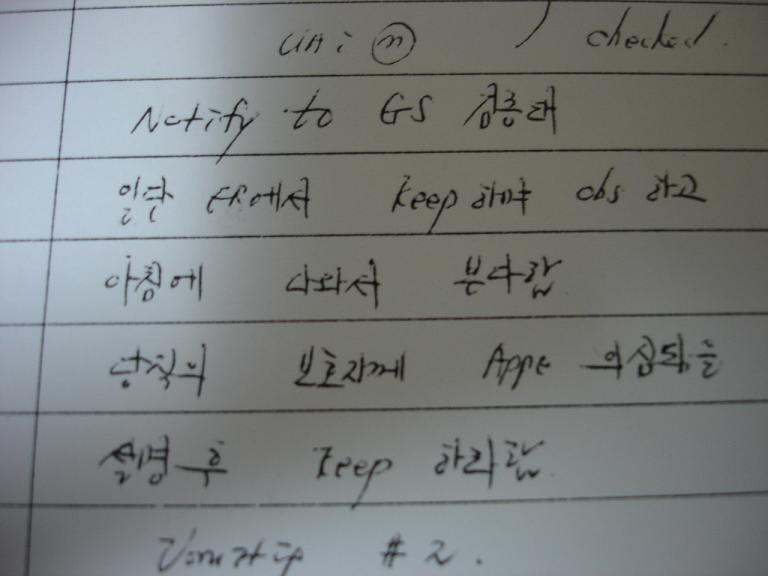 checked.
Notify to GS 김종태
일단 ER에서 keep 하며 obs 하고
아침에 나와서 본다함
당직의 보호자께 Appe 의심됨을
설명 후 keep 하라함
# 2.